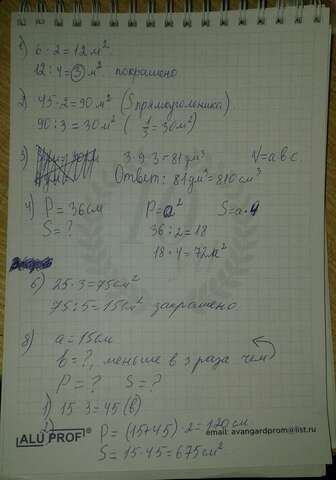 1) 6·2=12м².
12:4=3 м². покрашено
2) 45·2=90м² (S прямоугольника).
90:3=30м² (1/3=30м²)
3) 3·9·3=81дм³ V=abc.
Ответ: 81дм³=810см³
4) P=36см P=a² S=a·4
S=? 36:2=18
18·4=72м²
6) 25·3=75см²
75:5=15см² закрашено
8) a=15см
b=?, меньше в 3 раза чем
P=? S=?
1) 15·3=45(в)
2) P=(15+45)·2=120см
S=15·45=675см²
ALU PROF® email: avangardprom@list.ru